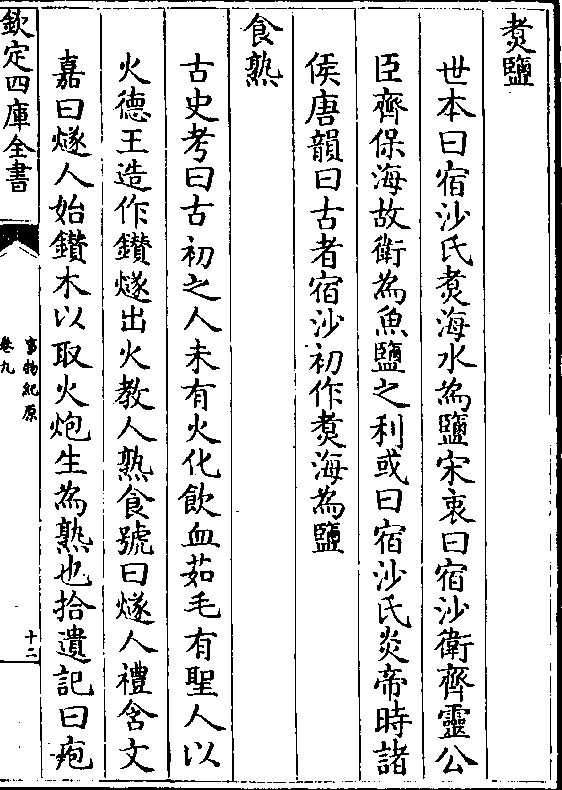 煑鹽
世本曰宿沙氏煑海水為鹽宋衷曰宿沙衛齊靈公
臣齊保海故衛為魚鹽之利或曰宿沙氏炎帝時諸
侯唐韻曰古者宿沙初作煑海為鹽
食熟
古史考曰古初之人未有火化飲血茹毛有聖人以
火德王造作鑚燧出火教人熟食號曰燧人禮含文
嘉曰燧人始鑚木以取火炮生為熟也拾遺記曰庖
欽定四庫全書
事物紀原
卷九
十二